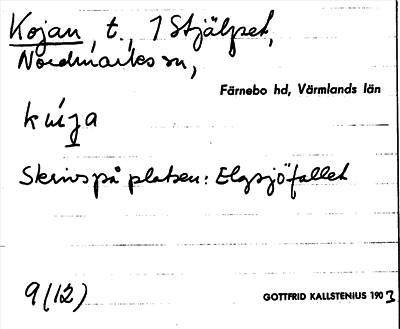 Kojan, t., 1 Stjälpet,
Nordmarks sn,
Färnebo hd, Värmlands län
kúja
Skrivs på platsen: Elgsjöfallet
9(12)
GOTTFRID KALLSTENIUS 1903